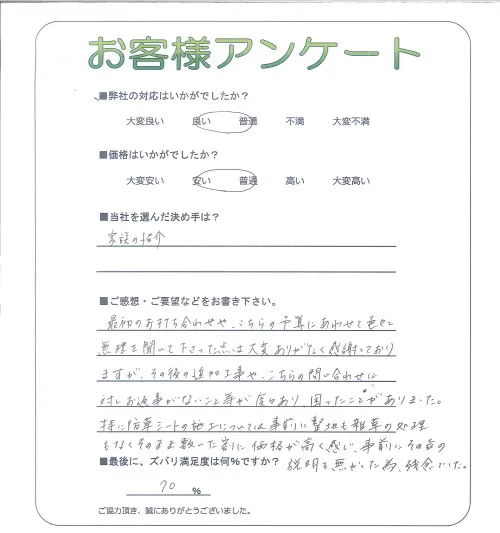 お客様アンケート
■弊社の対応はいかがでしたか？
大変良い 良い 普通 不満 大変不満
■価格はいかがでしたか？
大変安い 安い 普通 高い 大変高い
■当社を選んだ決め手は？
家族の紹介
■ご感想・ご要望などをお書き下さい。
最初のお打ち合わせや、こちらの予算にあわせて色々と
無理を聞いて下さった点は大変ありがたく感謝しており
ますが、その後の追加工事や、こちらの問い合わせに
対しお返事がないこと等が度々あり、困ったことがありました。
特に防草シートの施工については事前に整地も雑草の処理
もなくそのまま敷いた割に価格が高く感じ、事前にその
説明も無かった為、残念でした。
■最後に、ズバリ満足度は何%ですか？
70 %
ご協力頂き、誠にありがとうございました。